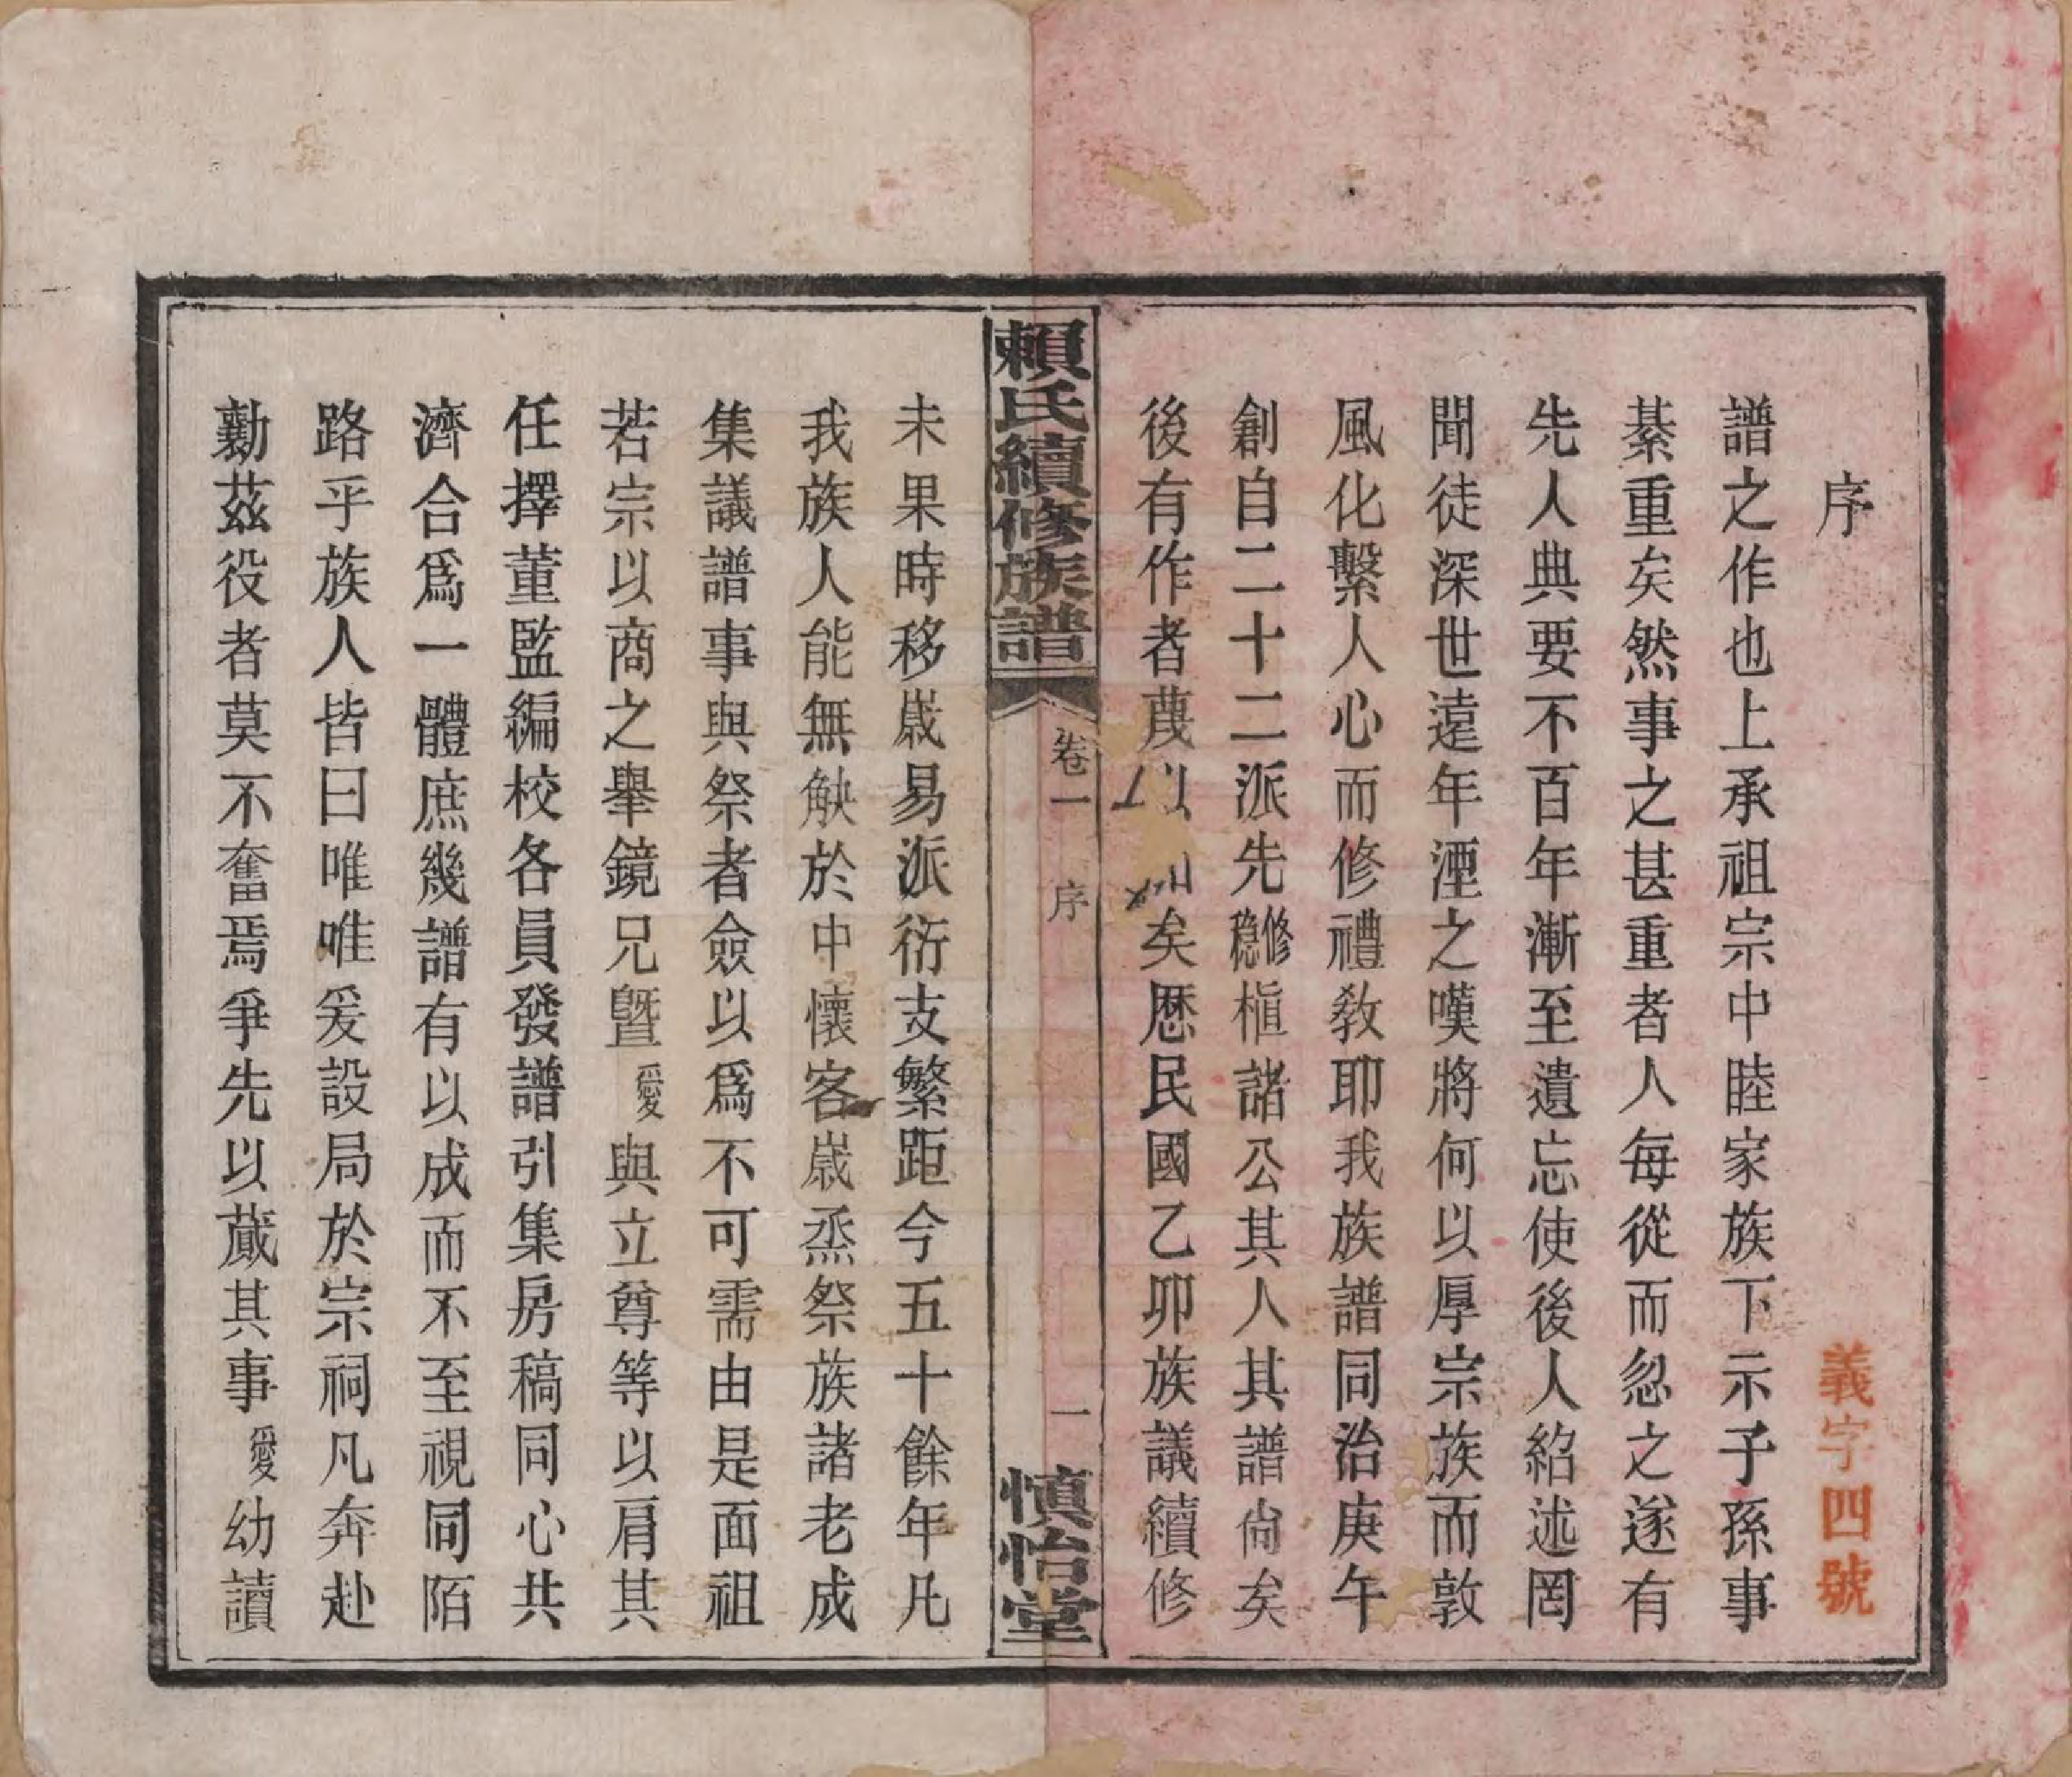 序
義字四號
譜之作也上承祖宗中睦家族下示子孫事
綦重矣然事之甚重者人每從而忽之遂有
先人典要不百年漸至遺忘使後人紹述罔
聞徒深世遠年湮之嘆將何以厚宗族而敦
風化繫人心而修禮教耶我族譜同治庚午
創自二十二派先修穩植諸公其人其譜尙矣
後有作者蔑以加矣歷民國乙卯族議續修
賴氏續修族譜
卷一
序
一
慎怡堂
未果時移歲易派衍支繁距今五十餘年凡
我族人能無觖於中懷客歲烝祭族諸老成
集議譜事與祭者僉以爲不可需由是面祖
若宗以商之舉鏡兄暨愛與立尊等以肩其
任擇董監編校各員發譜引集房稿同心共
濟合爲一體庶幾譜有以成而不至視同陌
路乎族人皆曰唯唯爰設局於宗祠凡奔赴
勷茲役者莫不奮焉爭先以蕆其事愛幼讀